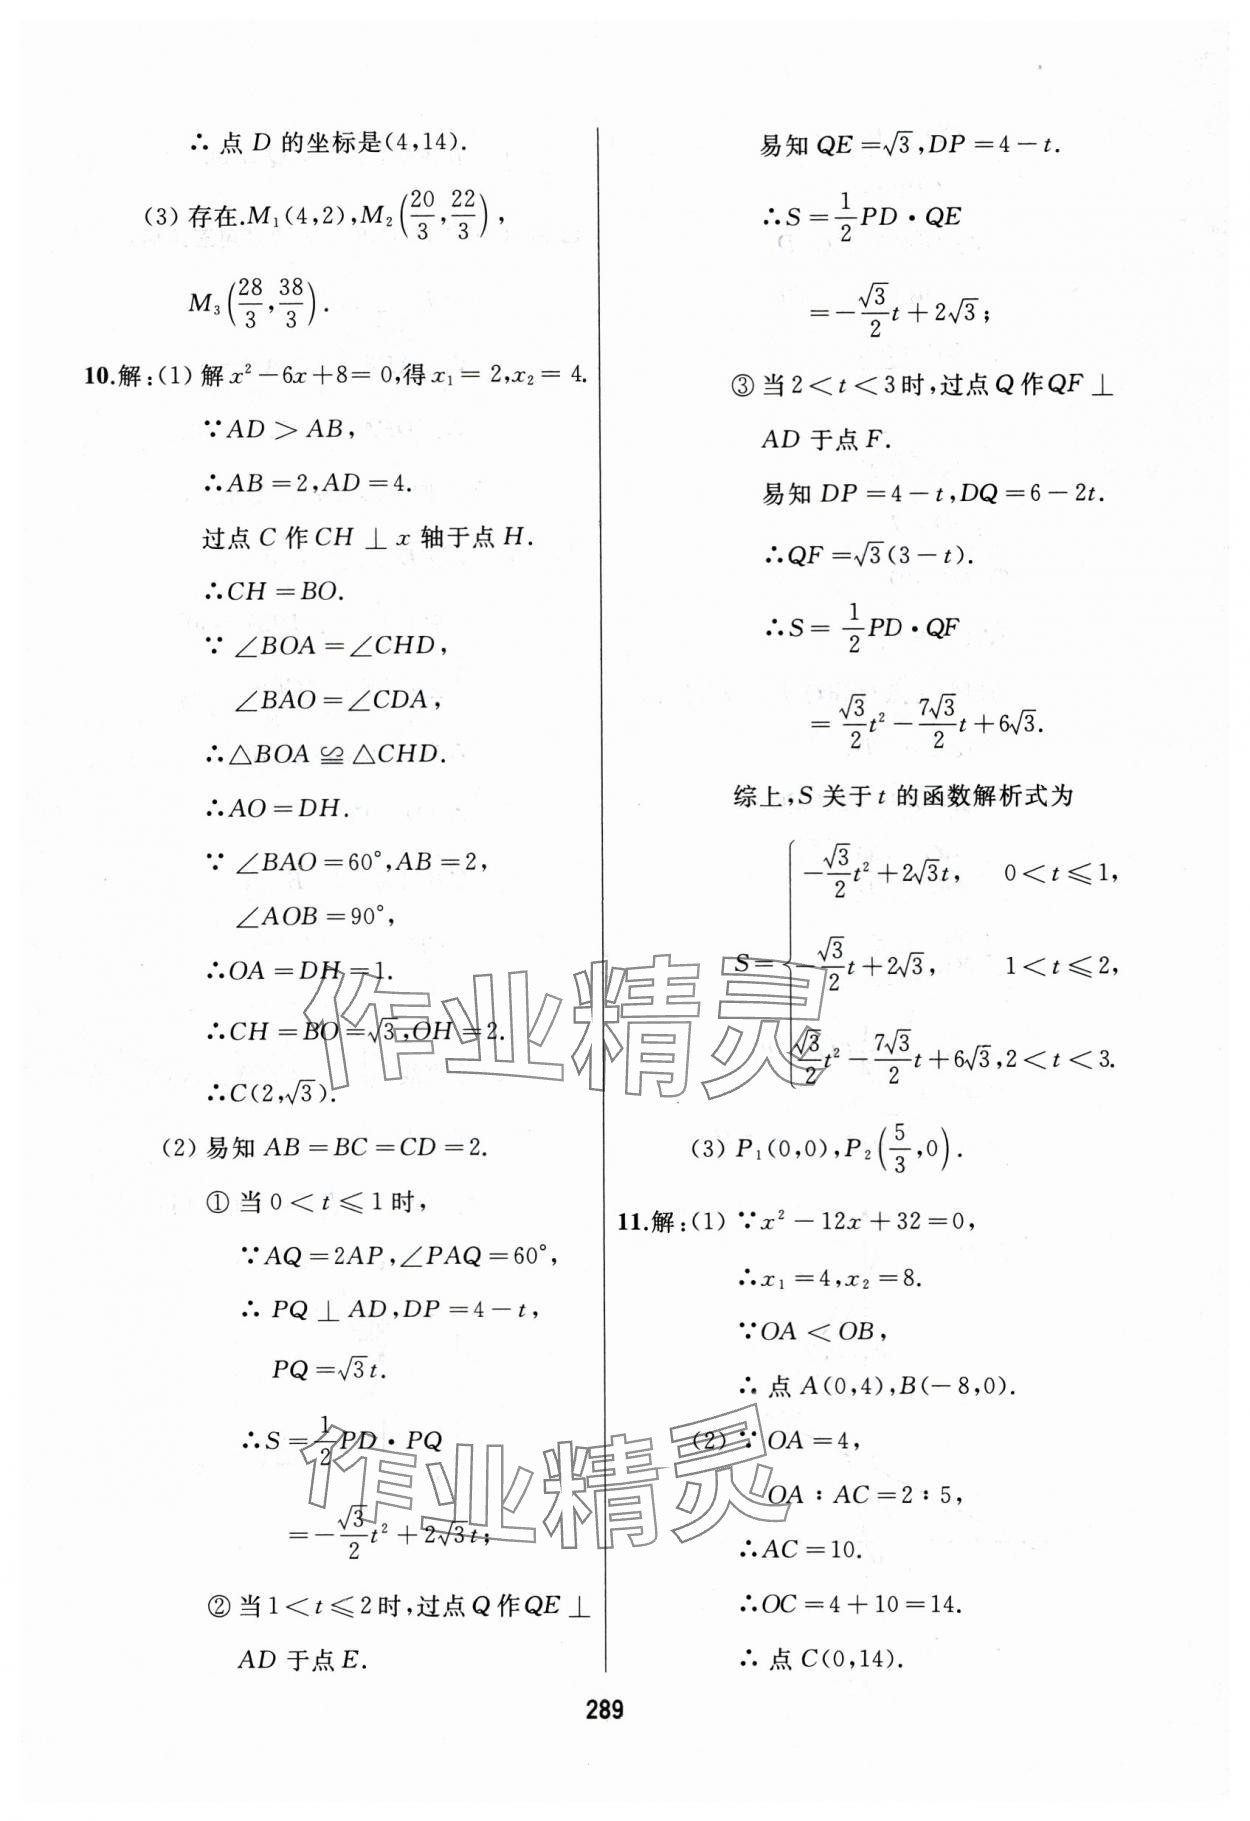 ∴ 点 D 的坐标是(4,14).
(3) 存在.M₁(4,2),M₂(20/3,22/3),
M₃(28/3,38/3).
10.解:(1) 解 x²-6x+8=0,得 x₁=2,x₂=4.
∵AD>AB,
∴AB=2,AD=4.
过点 C 作 CH⊥x 轴于点 H.
∴CH=BO.
∵∠BOA=∠CHD,
∠BAO=∠CDA,
∴△BOA≌△CHD.
∴AO=DH.
∵∠BAO=60°,AB=2,
∠AOB=90°,
∴OA=DH=1.
∴CH=BO=√3,OH=2.
∴C(2,√3).
(2) 易知 AB=BC=CD=2.
① 当 0<t⩽1 时,
∵AQ=2AP,∠PAQ=60°,
∴ PQ⊥AD,DP=4-t,
PQ=√3t.
∴S=1/2PD·PQ
=-√3/2t²+2√3t;
② 当 1<t⩽2 时,过点 Q 作 QE⊥
AD 于点 E.
易知 QE=√3,DP=4-t.
∴S=1/2PD·QE
=-√3/2t+2√3;
③ 当 2<t<3 时,过点 Q 作 QF⊥
AD 于点 F.
易知 DP=4-t,DQ=6-2t.
∴QF=√3(3-t).
∴S=1/2PD·QF
=√3/2t²-7√3/2t+6√3.
综上,S 关于 t 的函数解析式为
-√3/2t²+2√3t, 0<t⩽1,
S= -√3/2t+2√3, 1<t⩽2,
√3/2t²-7√3/2t+6√3,2<t<3.
(3) P₁(0,0),P₂(5/3,0).
11.解:(1) ∵x²-12x+32=0,
∴x₁=4,x₂=8.
∵OA<OB,
∴ 点 A(0,4),B(-8,0).
(2) ∵ OA=4,
OA:AC=2:5,
∴AC=10.
∴OC=4+10=14.
∴ 点 C(0,14).
289
作业精灵
作业精灵